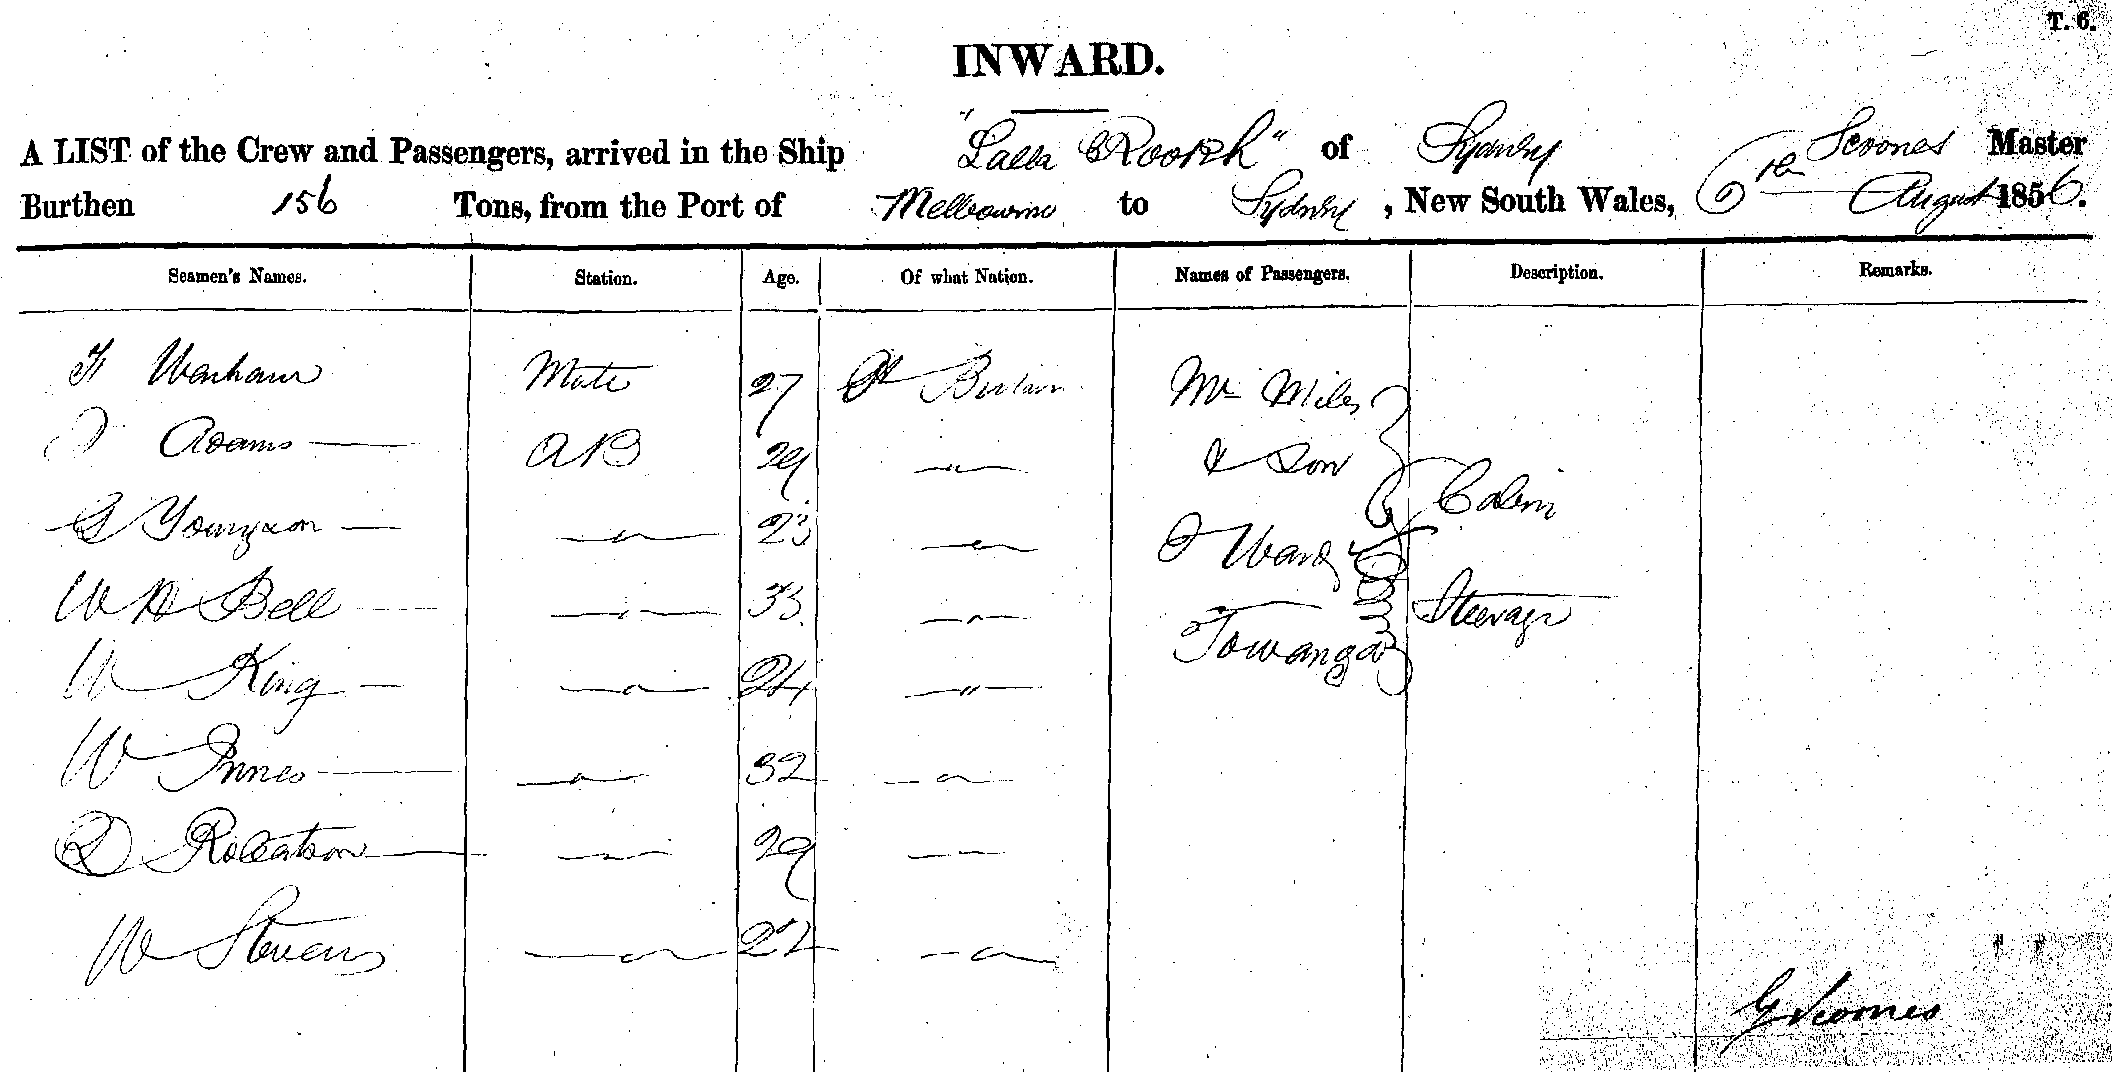 T. 6.
INWARD.
A LIST of the Crew and Passengers, arrived in the Ship "Lalla Rookh" of Sydney Scoones Master
Burthen 156 Tons, from the Port of Melbourne to Sydney, New South Wales, 6th August 1856.
Seamen's Names. Station. Age. Of what Nation. Names of Passengers. Description. Remarks.
Mate 27 Gt Britain Mr Miles
Adams — AB 29 — " — & Son
Cabin
S Youngson — — " — 23 — " — Ward
W H Bell — — " — 33 — " — Steerage
Towanga
W King — — " — 24 — " —
W Innes — — " — 32 — " —
D Robertson — — " — 29 — " —
W Stevens — " — 22 — " —
G Scoones